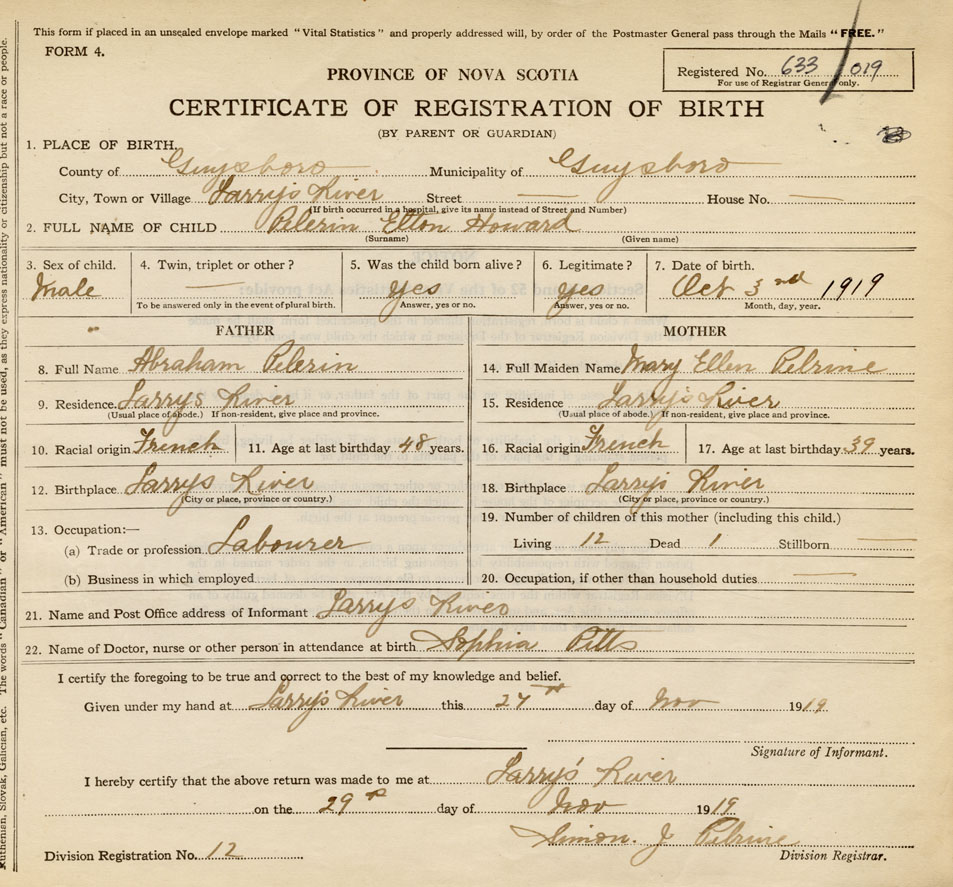 This form if placed in an unsealed envelope marked "Vital Statistics" and properly addressed will, by order of the Postmaster General pass through the Mails "FREE."
FORM 4.
Registered No. 633 / 019
For use of Registrar General only.
PROVINCE OF NOVA SCOTIA
CERTIFICATE OF REGISTRATION OF BIRTH
(BY PARENT OR GUARDIAN)
1. PLACE OF BIRTH.
County of Guysboro Municipality of Guysboro
City, Town or Village Larry's River Street — House No. —
(If birth occurred in a hospital, give its name instead of Street and Number)
2. FULL NAME OF CHILD Pelerin Elton Howard
(Surname) (Given name)
3. Sex of child. 4. Twin, triplet or other? 5. Was the child born alive? 6. Legitimate? 7. Date of birth.
Male — Yes Yes Oct 3rd 1919
To be answered only in the event of plural birth. Answer, yes or no. Answer, yes or no. Month, day, year.
FATHER
8. Full Name Abraham Pelerin
9. Residence. Larrys River
(Usual place of abode.) If non-resident, give place and province.
10. Racial origin French 11. Age at last birthday 48 years.
12. Birthplace Larrys River
(City or place, province or country.)
13. Occupation:—
(a) Trade or profession Labourer
(b) Business in which employed
MOTHER
14. Full Maiden Name Mary Ellen Pelrine
15. Residence Larry's River
(Usual place of abode.) If non-resident, give place and province.
16. Racial origin French 17. Age at last birthday 39 years.
18. Birthplace Larrys River
(City or place, province or country.)
19. Number of children of this mother (including this child.)
Living 12 Dead 1 Stillborn —
20. Occupation, if other than household duties —
21. Name and Post Office address of Informant Larrys River
22. Name of Doctor, nurse or other person in attendance at birth Sophia Pitts
I certify the foregoing to be true and correct to the best of my knowledge and belief.
Given under my hand at Larry's River this 27th day of Nov 1919
Signature of Informant.
I hereby certify that the above return was made to me at Larry's River
on the 29th day of Nov 1919
Simon. J Pelrine
Division Registration No. 12 Division Registrar.
Ruthenian, Slovak, Galician, etc. The words "Canadian" or "American" must not be used, as they express nationality or citizenship but not a race or people.